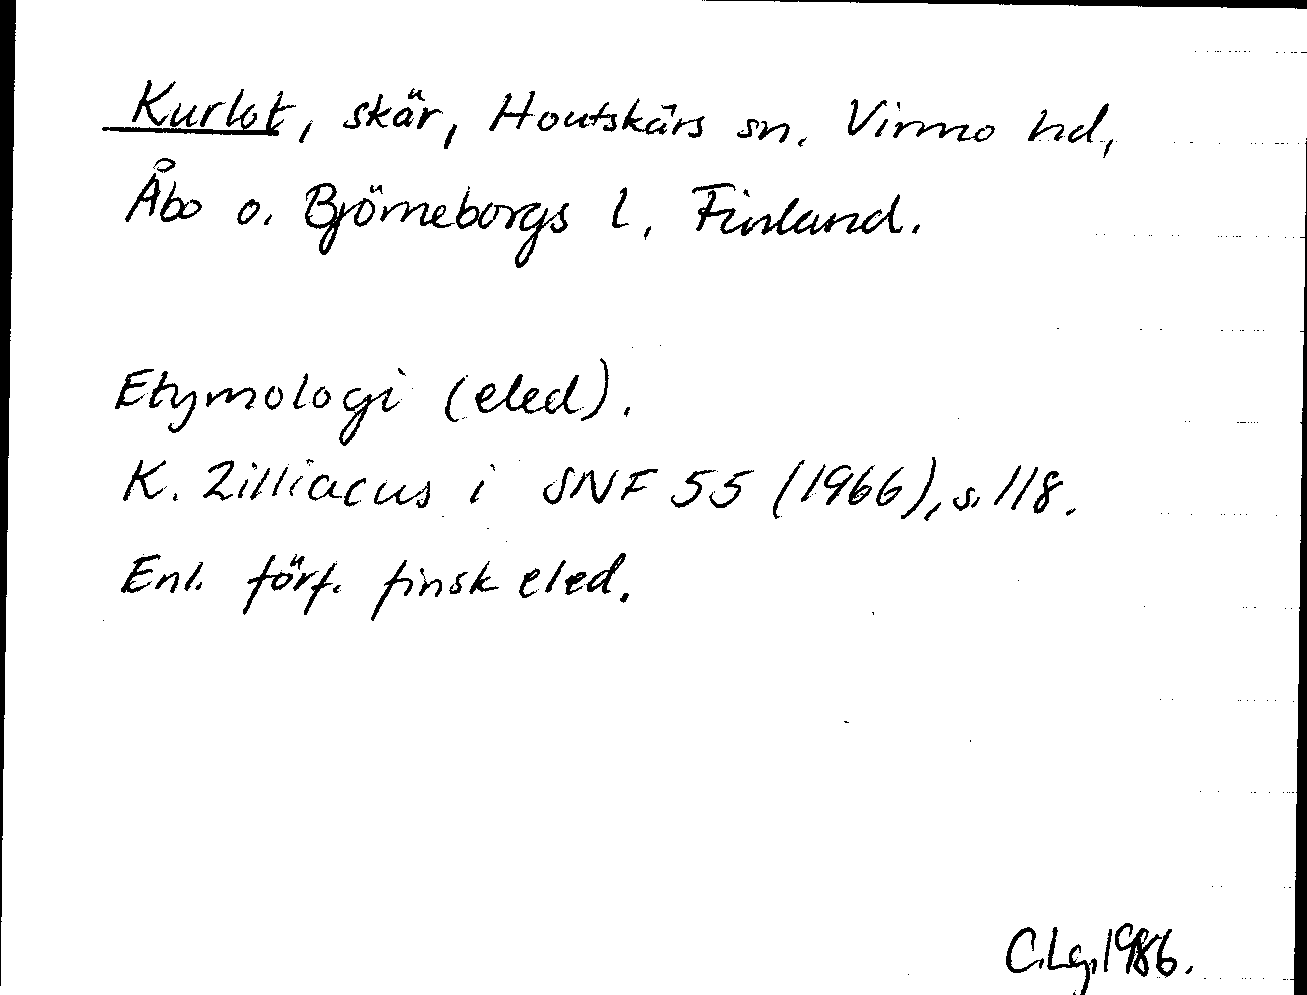 Kurlot, skär, Houtskärs sn. Virmo hd,
Åbo o. Björneborgs l, Finland.
Etymologi (eled).
K. Zilliacus i SNF 55 (1966), s. 118.
Enl. förf. finsk eled.
C.Lg. 1986.